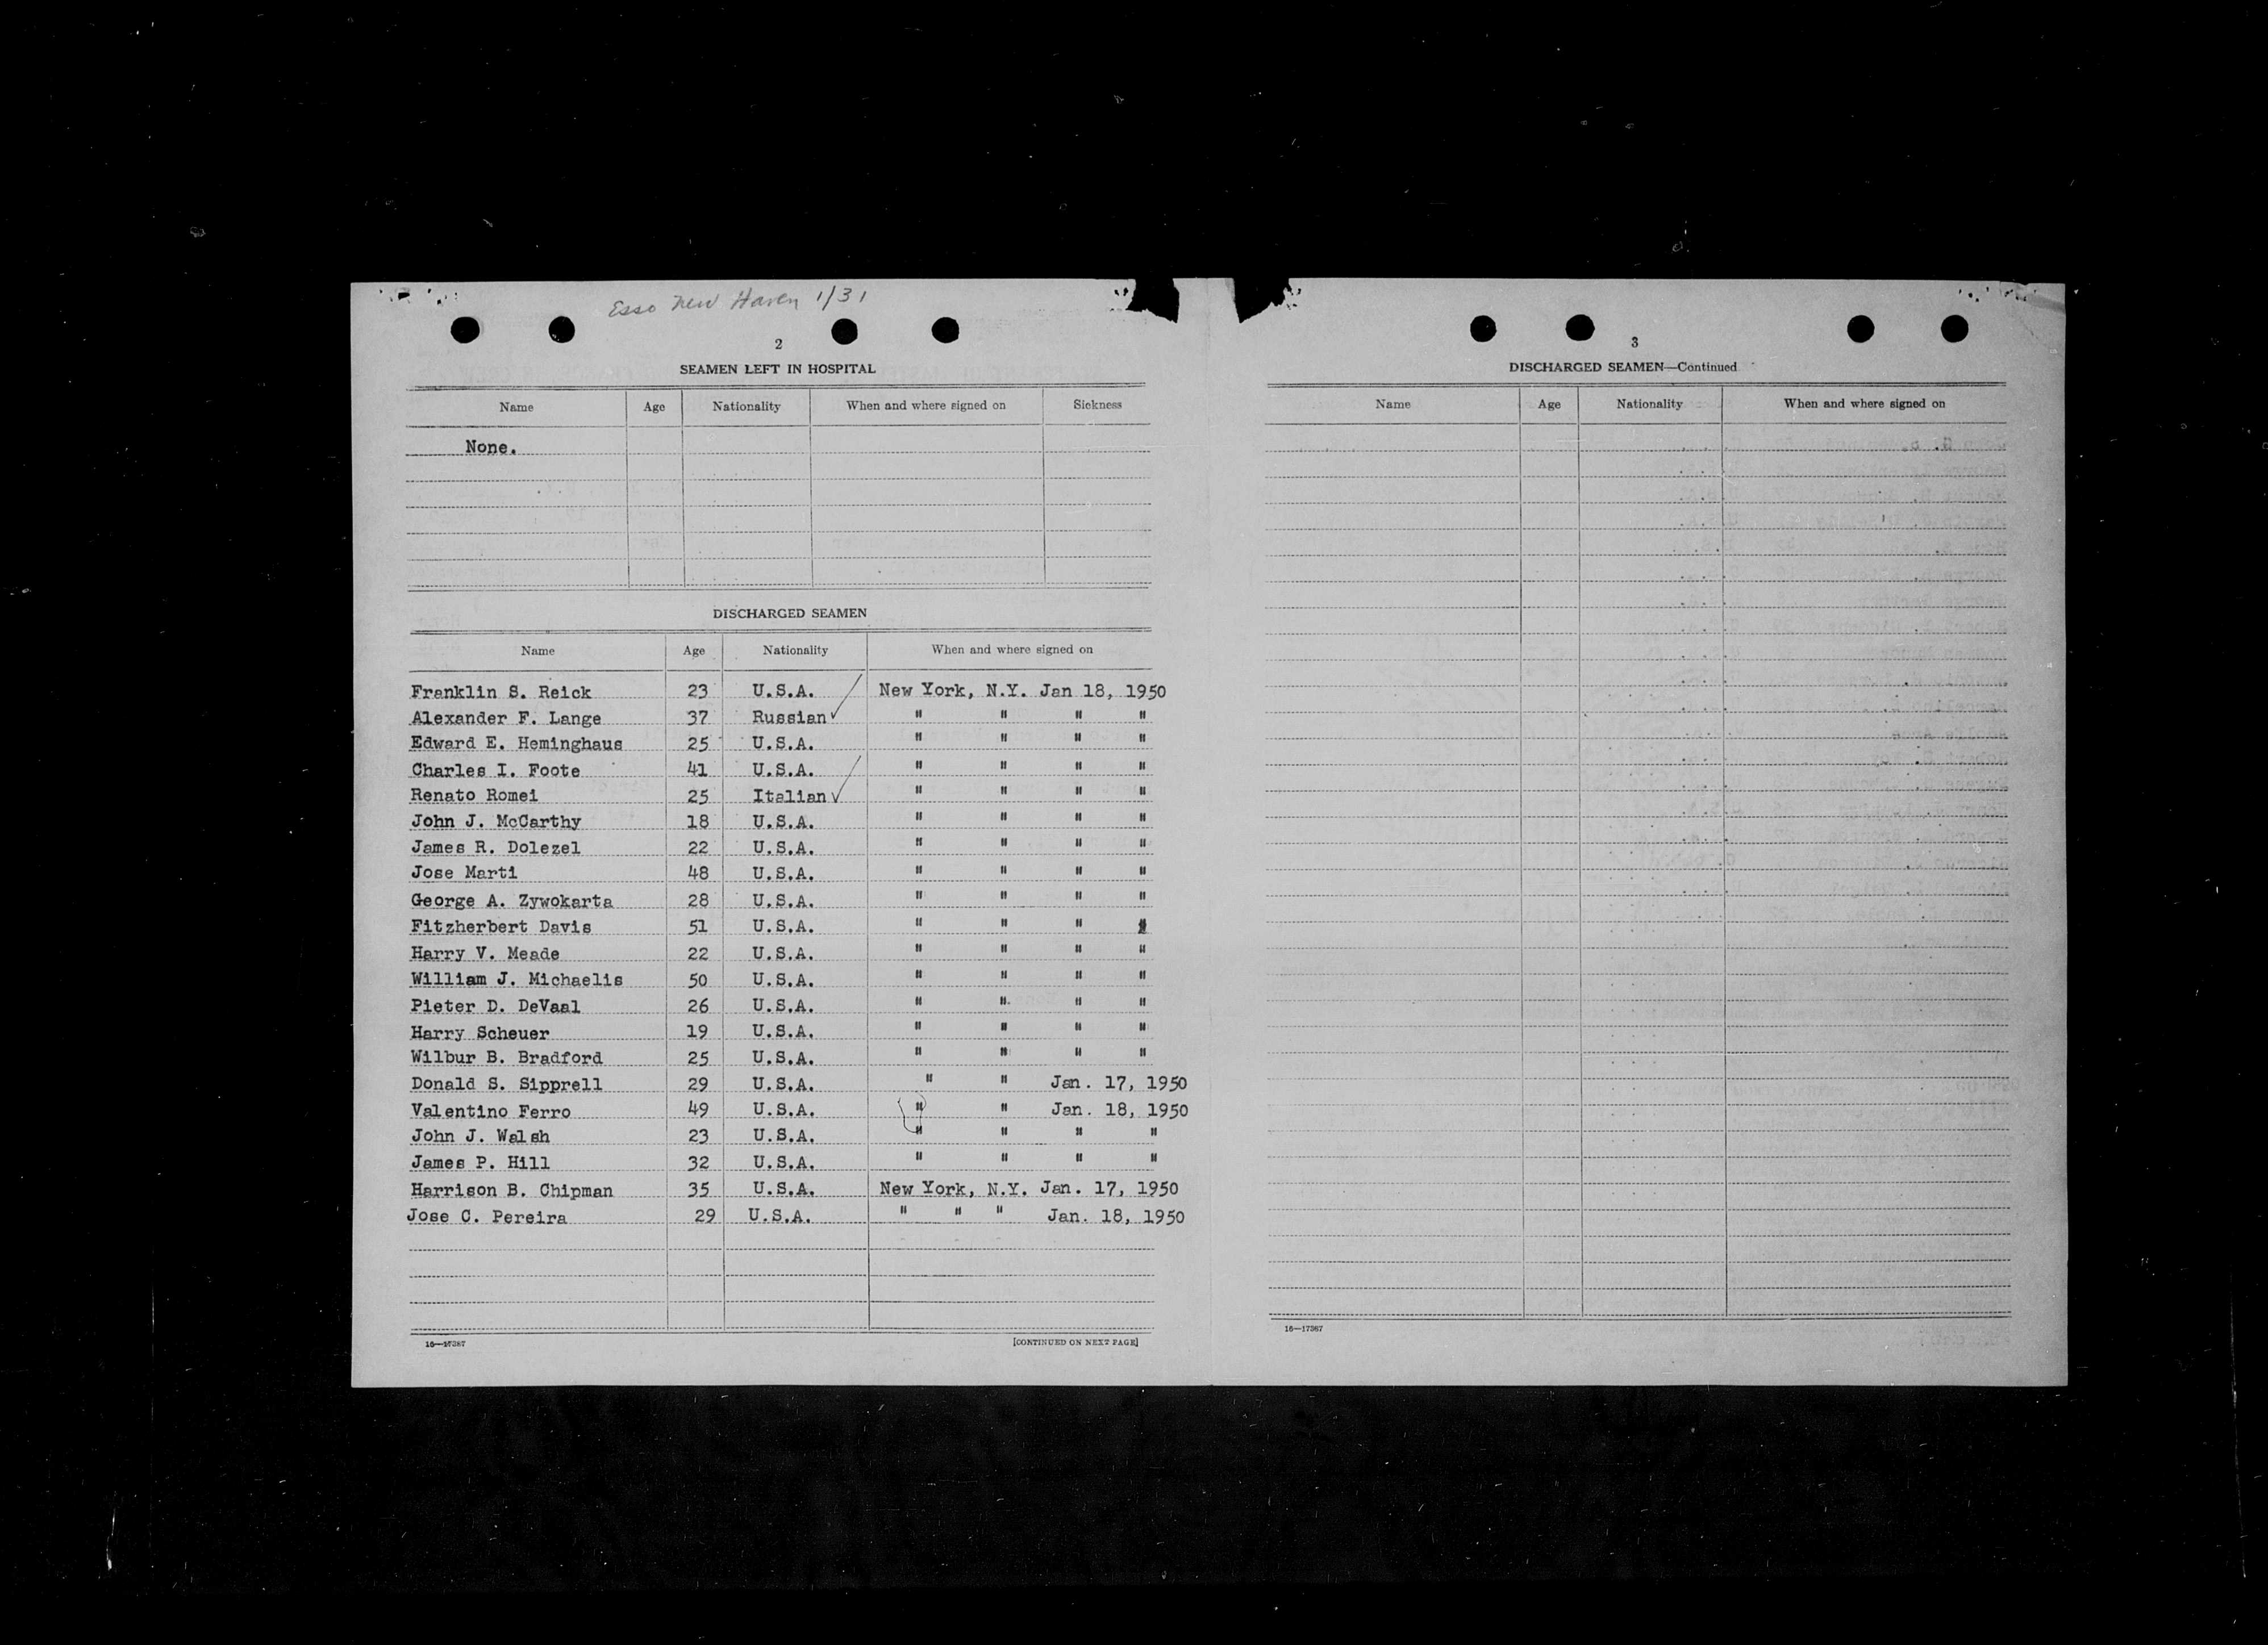 Esso New Haven 1/31
2
SEAMEN LEFT IN HOSPITAL
Name Age Nationality When and where signed on Sickness
None.
DISCHARGED SEAMEN
Name Age Nationality When and where signed on
Franklin S. Reick 23 U.S.A. New York, N.Y. Jan 18, 1950
Alexander F. Lange 37 Russian ✓ " " " "
Edward E. Heminghaus 25 U.S.A. " " " "
Charles I. Foote 41 U.S.A. " " " "
Renato Romei 25 Italian ✓ " " " "
John J. McCarthy 18 U.S.A. " " " "
James R. Dolezel 22 U.S.A. " " " "
Jose Marti 48 U.S.A. " " " "
George A. Zywokarta 28 U.S.A. " " " "
Fitzherbert Davis 51 U.S.A. " " " "
Harry V. Meade 22 U.S.A. " " " "
William J. Michaelis 50 U.S.A. " " " "
Pieter D. DeVaal 26 U.S.A. " " " "
Harry Scheuer 19 U.S.A. " " " "
Wilbur B. Bradford 25 U.S.A. " " " "
Donald S. Sipprell 29 U.S.A. " " Jan. 17, 1950
Valentino Ferro 49 U.S.A. " " Jan. 18, 1950
John J. Walsh 23 U.S.A. " " " "
James P. Hill 32 U.S.A. " " " "
Harrison B. Chipman 35 U.S.A. New York, N.Y. Jan. 17, 1950
Jose C. Pereira 29 U.S.A. " " " Jan. 18, 1950
16—17387 [CONTINUED ON NEXT PAGE]
3
DISCHARGED SEAMEN—Continued
Name Age Nationality When and where signed on
16—17387